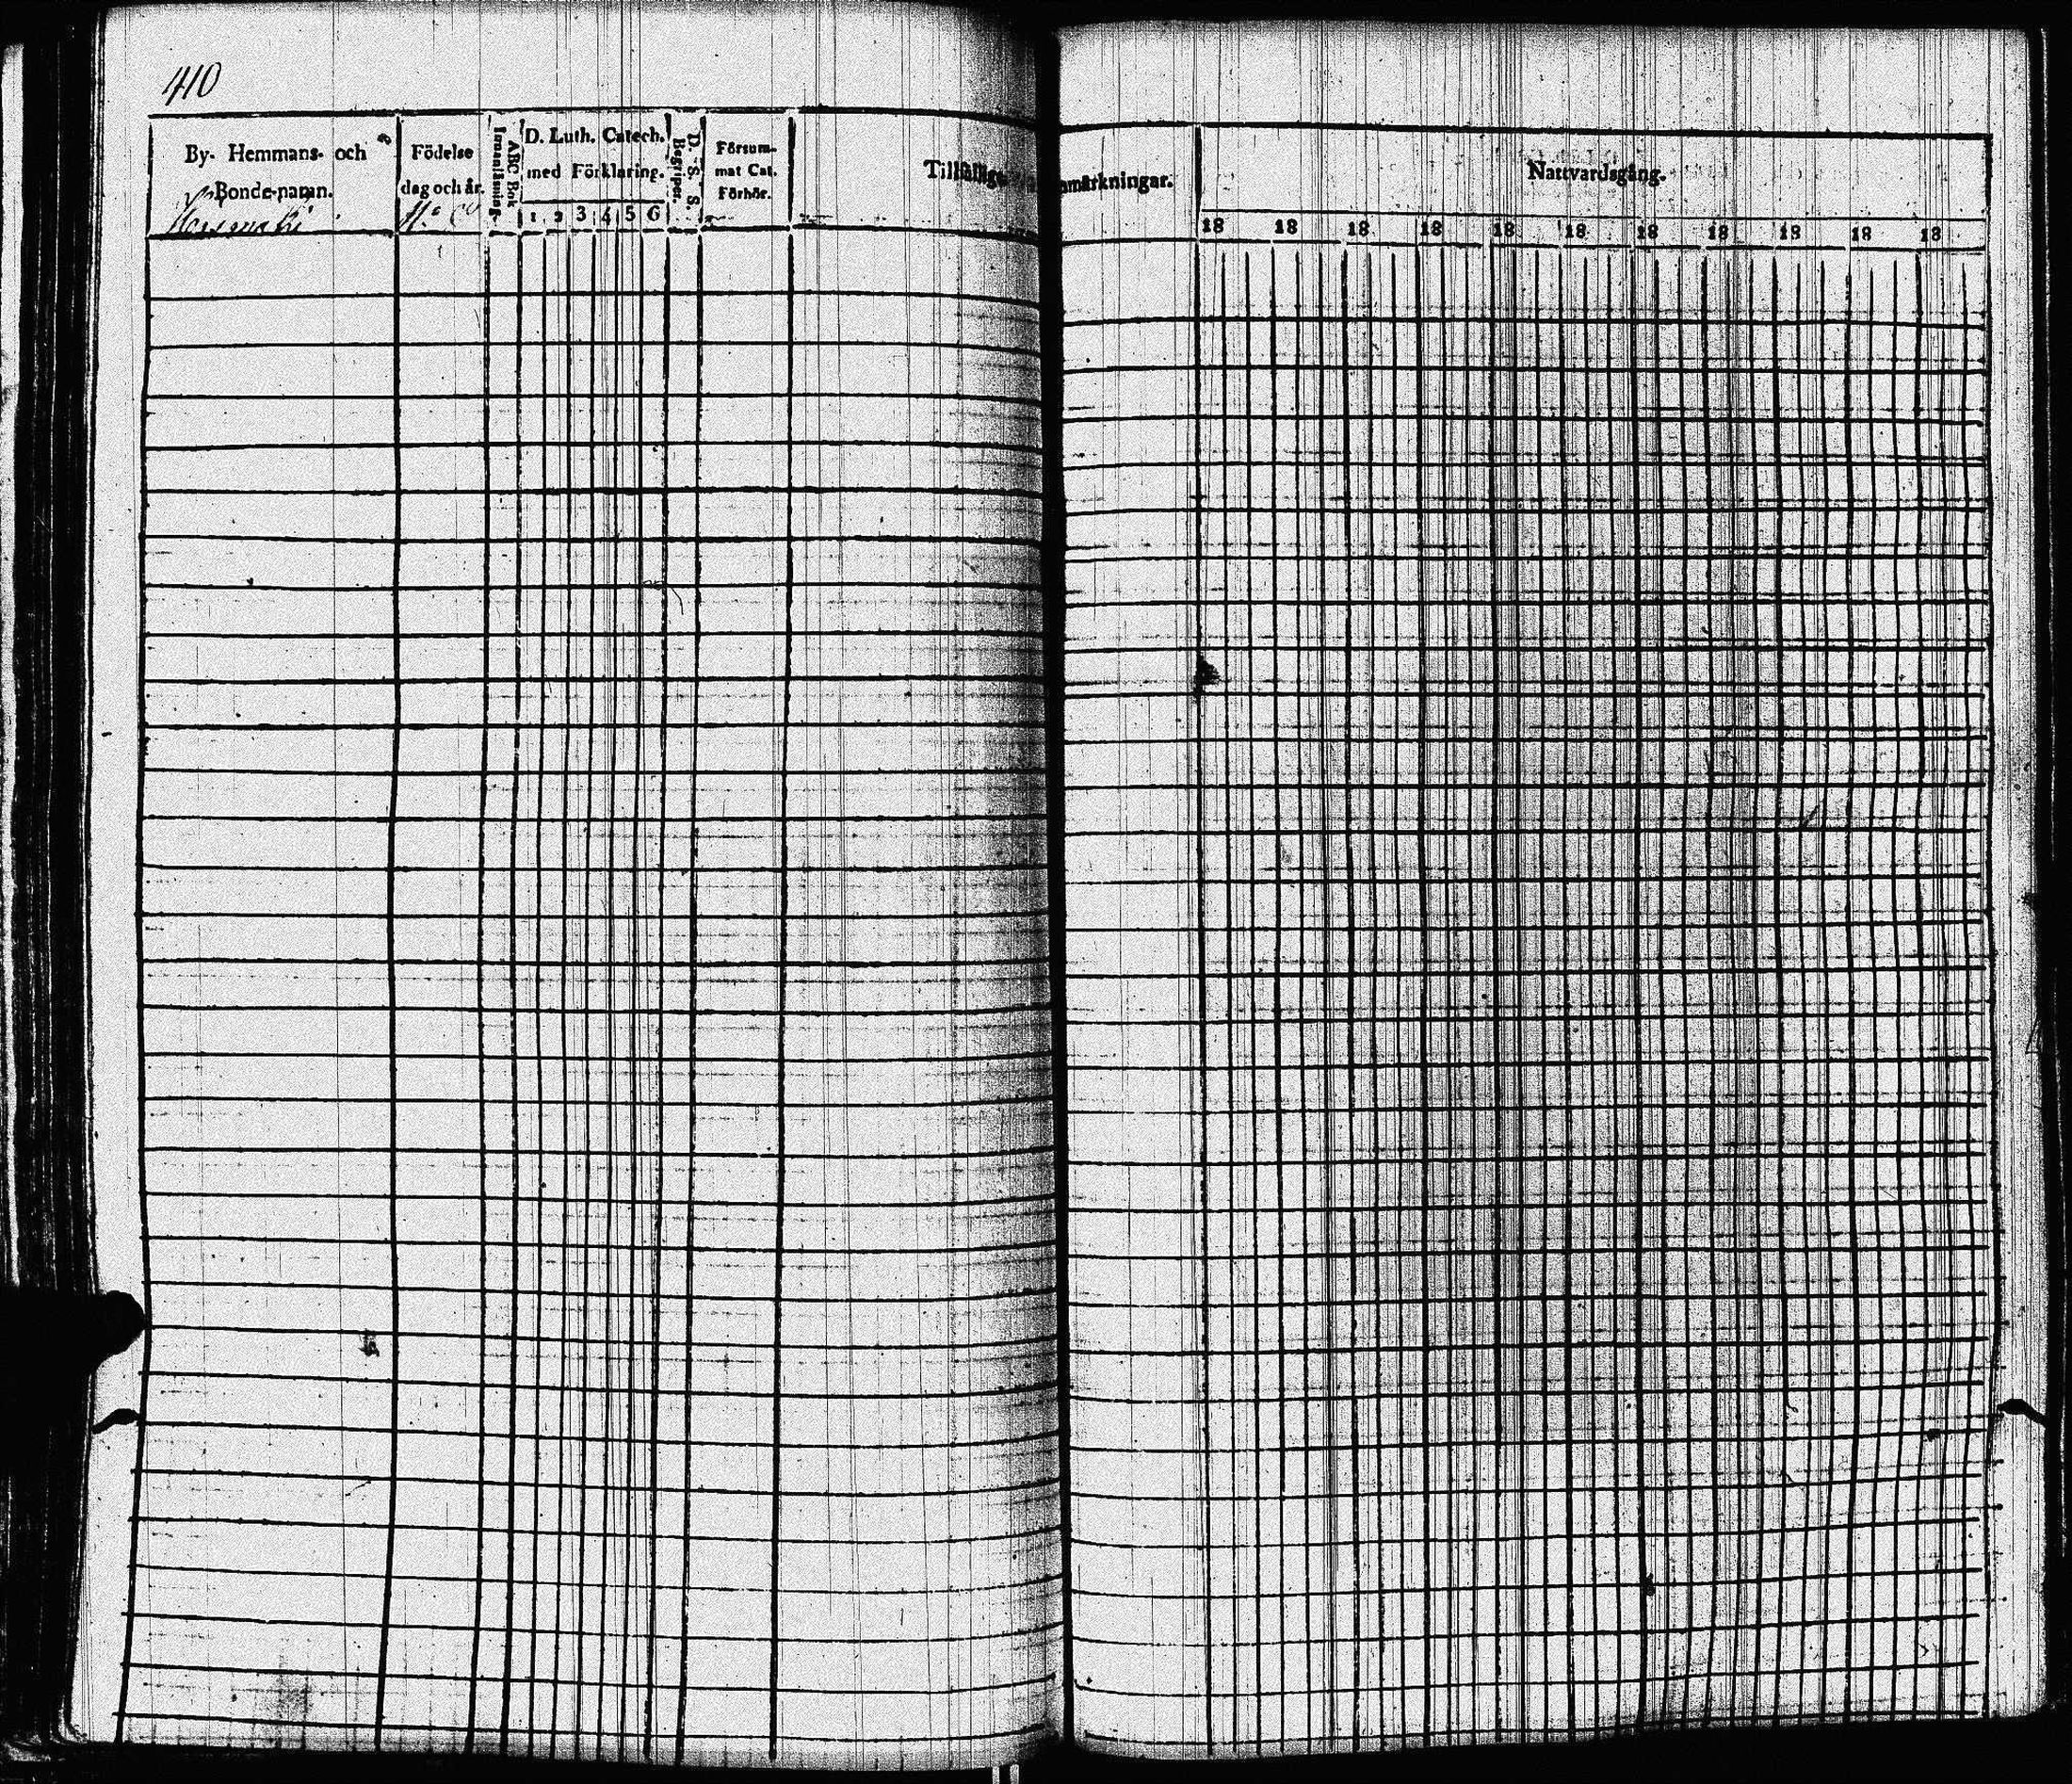 410
By- Hemmans- och
Bonde-namn.
Födelse
dag och år.
ABC Bok
Innanläsning.
D. Luth. Catech.
med Förklaring.
1 2 3 4 5 6
D. S. S.
Begriper.
Försum-
mat Cat.
Förhör.
Tillfällige Anmärkningar.
Nattvardsgång.
18 18 18 18 18 18 18 18 18 18 18